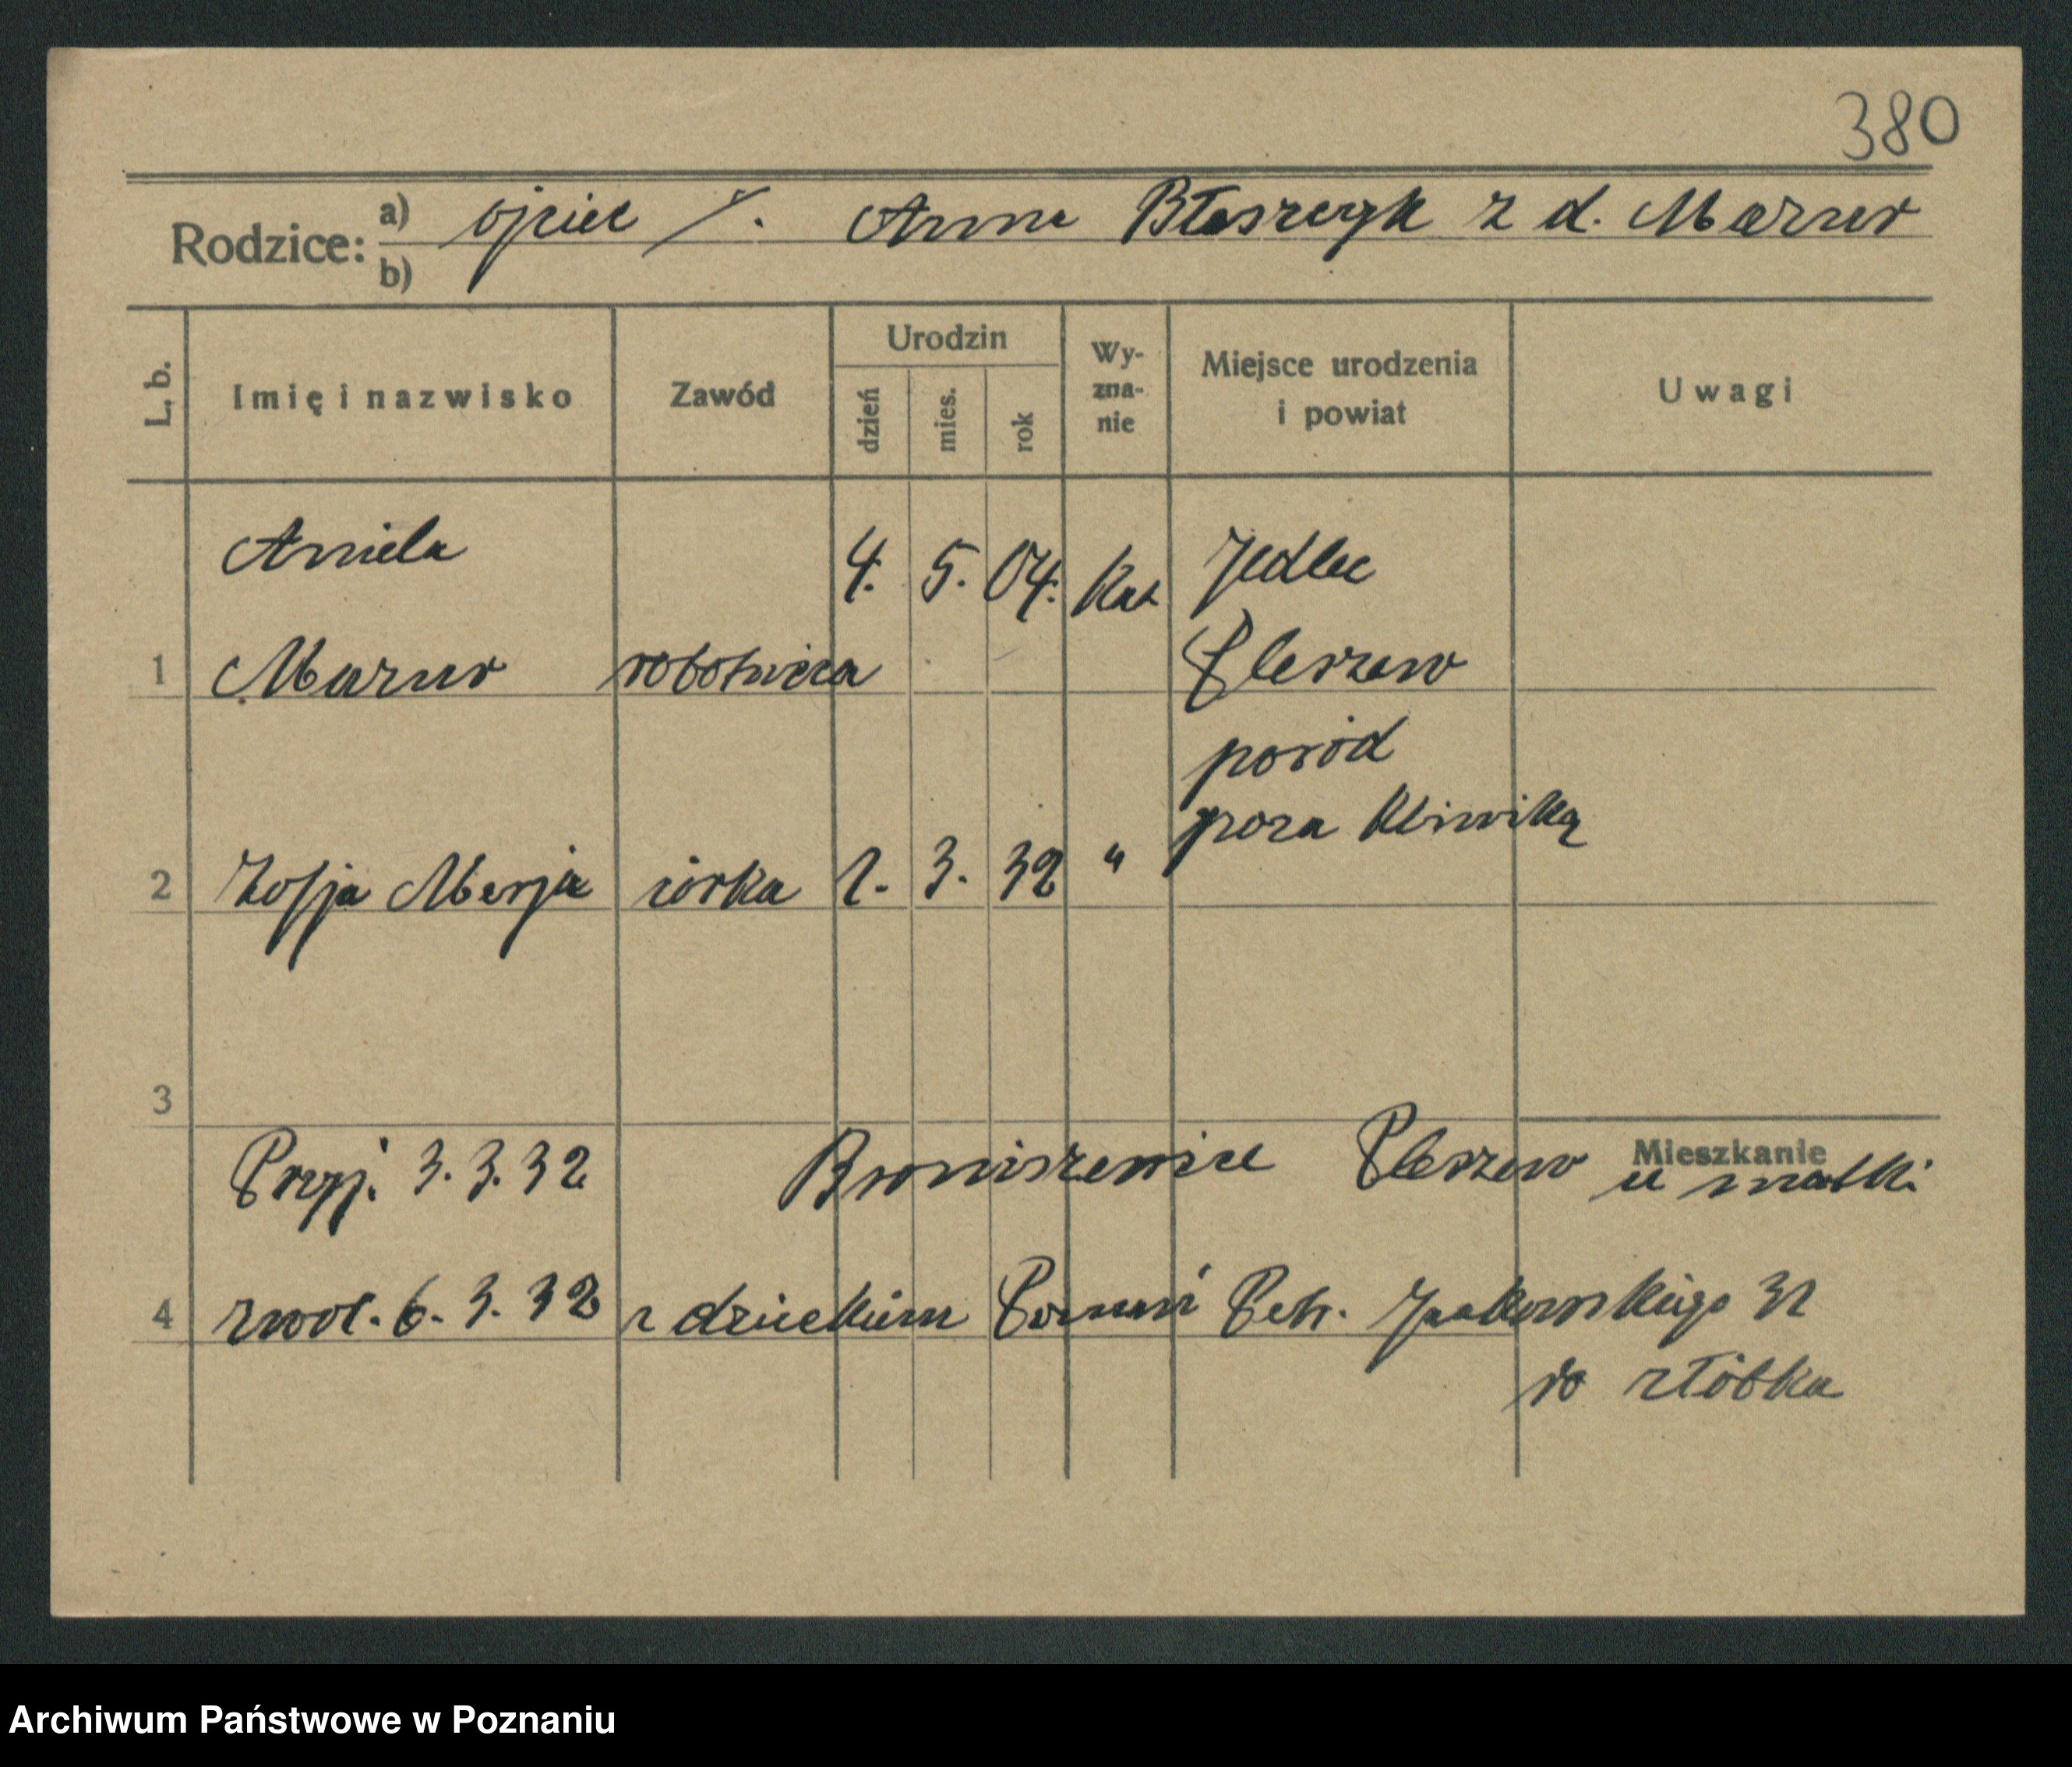 380
Rodzice: a) ojciec /. Anna Błaszczyk z d. Mazur
b)
L. b. Imię i nazwisko Zawód Urodzin dzień mies. rok Wy-zna-nie Miejsce urodzenia i powiat Uwagi
Aniela 4. 5. 04. Kat Jedlec
1 Mazur robotnica Pleszew
poród
poza Kliniką
2 Zofja Marja córka 2. 3. 32 "
3
Mieszkanie
Przyj. 3. 3. 32 Broniszewice Pleszew u matki
4 zwol. 6. 3. 32 z dzieckiem Poznań Jackowskiego
do żłóbka
Archiwum Państwowe w Poznaniu